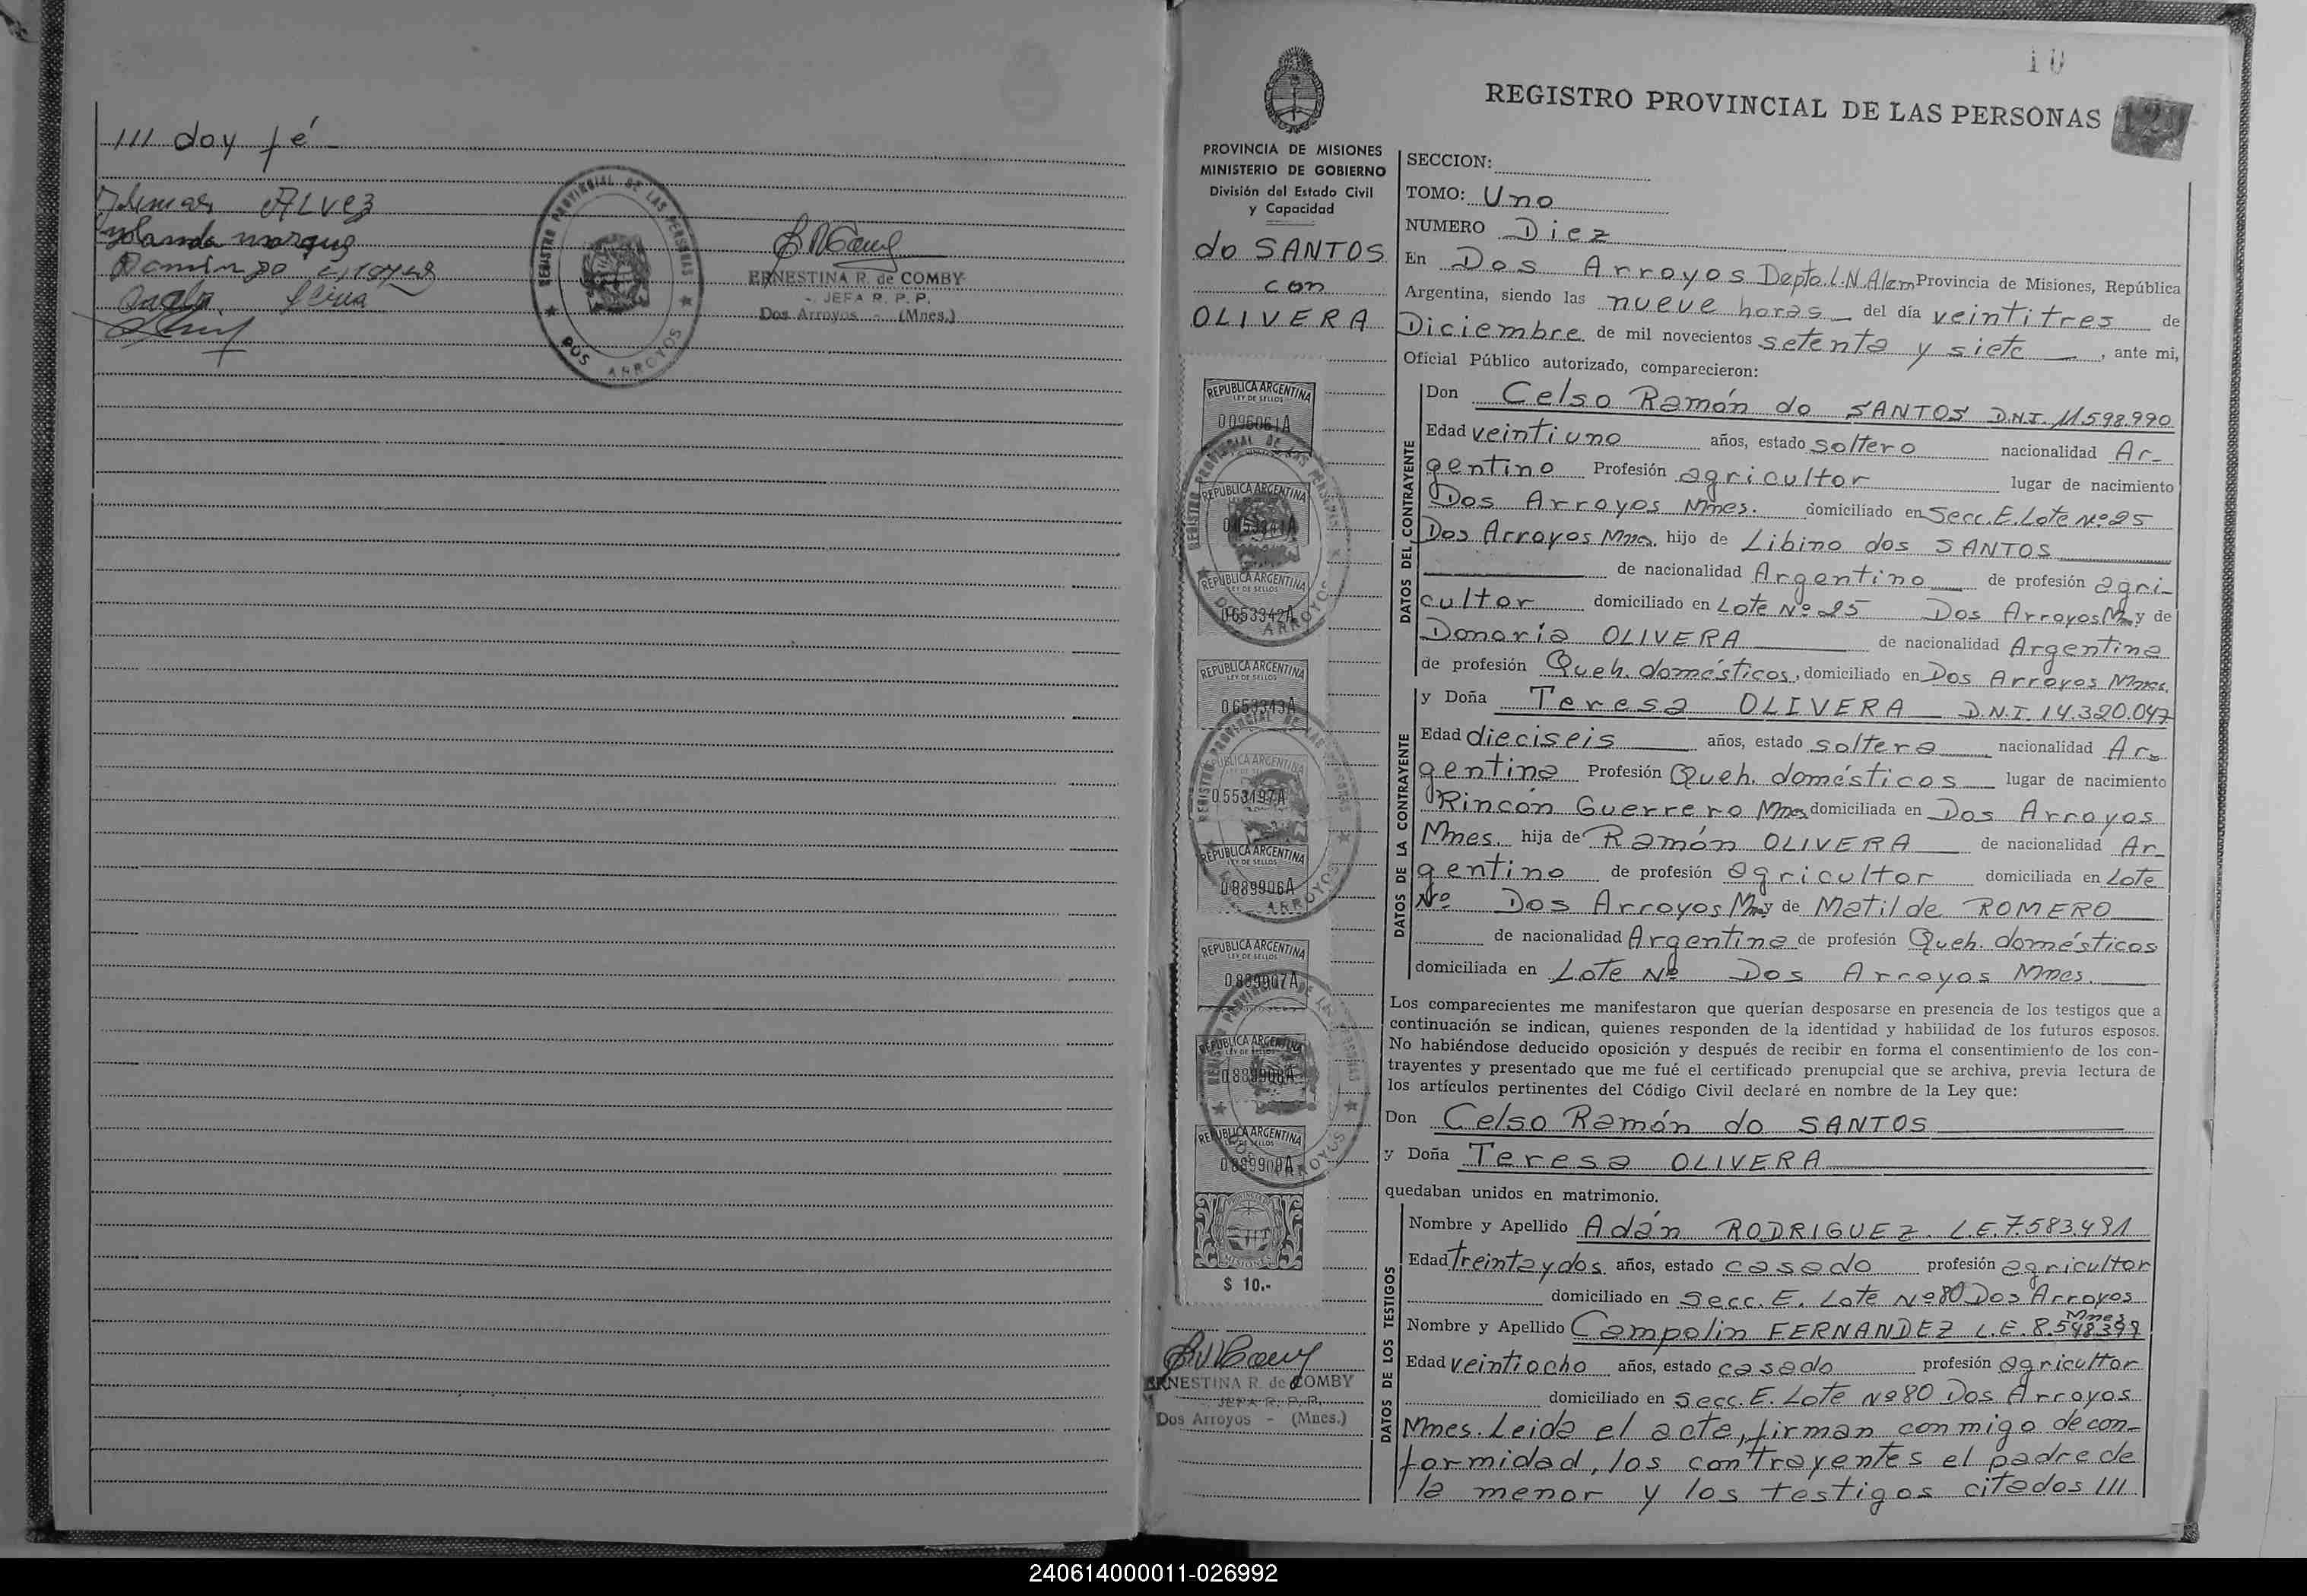 /// doy fé
ALVEZ
Yolanda
Domingo
ERNESTINA R. de COMBY
JEFA R. P. P.
Dos Arroyos - (Mnes.)
REGISTRO PROVINCIAL DE LAS PERSONAS
DOS ARROYOS
10
REGISTRO PROVINCIAL DE LAS PERSONAS
PROVINCIA DE MISIONES
MINISTERIO DE GOBIERNO
División del Estado Civil
y Capacidad
do SANTOS
con
OLIVERA
REPUBLICA ARGENTINA
LEY DE SELLOS
0096061A
REPUBLICA ARGENTINA
0653341A
REPUBLICA ARGENTINA
LEY DE SELLOS
0653342A
REPUBLICA ARGENTINA
LEY DE SELLOS
0653343A
REPUBLICA ARGENTINA
0553197A
REPUBLICA ARGENTINA
LEY DE SELLOS
0889906A
REPUBLICA ARGENTINA
LEY DE SELLOS
0889907A
REPUBLICA ARGENTINA
LEY DE SELLOS
0889908A
REPUBLICA ARGENTINA
LEY DE SELLOS
0889909A
MISIONES
$ 10.-
ERNESTINA R. de COMBY
JEFA R. P. P.
Dos Arroyos - (Mnes.)
SECCION:
TOMO: Uno
NUMERO Diez
En Dos Arroyos Depto. L.N.Alem Provincia de Misiones, República
Argentina, siendo las nueve horas del día veintitres de
Diciembre de mil novecientos setenta y siete, ante mi,
Oficial Público autorizado, comparecieron:
DATOS DEL CONTRAYENTE
Don Celso Ramón do SANTOS D.N.I. 11.598.990
Edad veintiuno años, estado soltero nacionalidad Ar-
gentino Profesión agricultor lugar de nacimiento
Dos Arroyos Mnes. domiciliado en Secc. E. Lote Nº 25
Dos Arroyos Mnes. hijo de Libino dos SANTOS
de nacionalidad Argentino de profesión agri-
cultor domiciliado en Lote Nº 25 Dos Arroyos Mnes y de
Donaria OLIVERA de nacionalidad Argentina
de profesión Queh. domésticos, domiciliado en Dos Arroyos Mnes.
DATOS DE LA CONTRAYENTE
y Doña Teresa OLIVERA D.N.I. 14.320.047
Edad dieciseis años, estado soltera nacionalidad Ar-
gentina Profesión Queh. domésticos lugar de nacimiento
Rincón Guerrero Mnes domiciliada en Dos Arroyos
Mnes. hija de Ramón OLIVERA de nacionalidad Ar-
gentino de profesión agricultor domiciliada en Lote
Nº Dos Arroyos Mnes y de Matilde ROMERO
de nacionalidad Argentina de profesión Queh. domésticos
domiciliada en Lote Nº Dos Arroyos Mnes.
Los comparecientes me manifestaron que querían desposarse en presencia de los testigos que a
continuación se indican, quienes responden de la identidad y habilidad de los futuros esposos.
No habiéndose deducido oposición y después de recibir en forma el consentimiento de los con-
trayentes y presentado que me fué el certificado prenupcial que se archiva, previa lectura de
los artículos pertinentes del Código Civil declaré en nombre de la Ley que:
Don Celso Ramón do SANTOS
y Doña Teresa OLIVERA
quedaban unidos en matrimonio.
DATOS DE LOS TESTIGOS
Nombre y Apellido Adán RODRIGUEZ. L.E. 7.583.491
Edad treinta y dos años, estado casado profesión agricultor
domiciliado en Secc. E. Lote Nº 80 Dos Arroyos
Mnes.
Nombre y Apellido Campolin FERNANDEZ L.E. 8.548.399
Edad veintiocho años, estado casado profesión agricultor
domiciliado en Secc. E. Lote Nº 80 Dos Arroyos
Mnes. Leida el acta, firman conmigo de con-
formidad, los contrayentes el padre de
la menor y los testigos citados ///
240614000011-026992